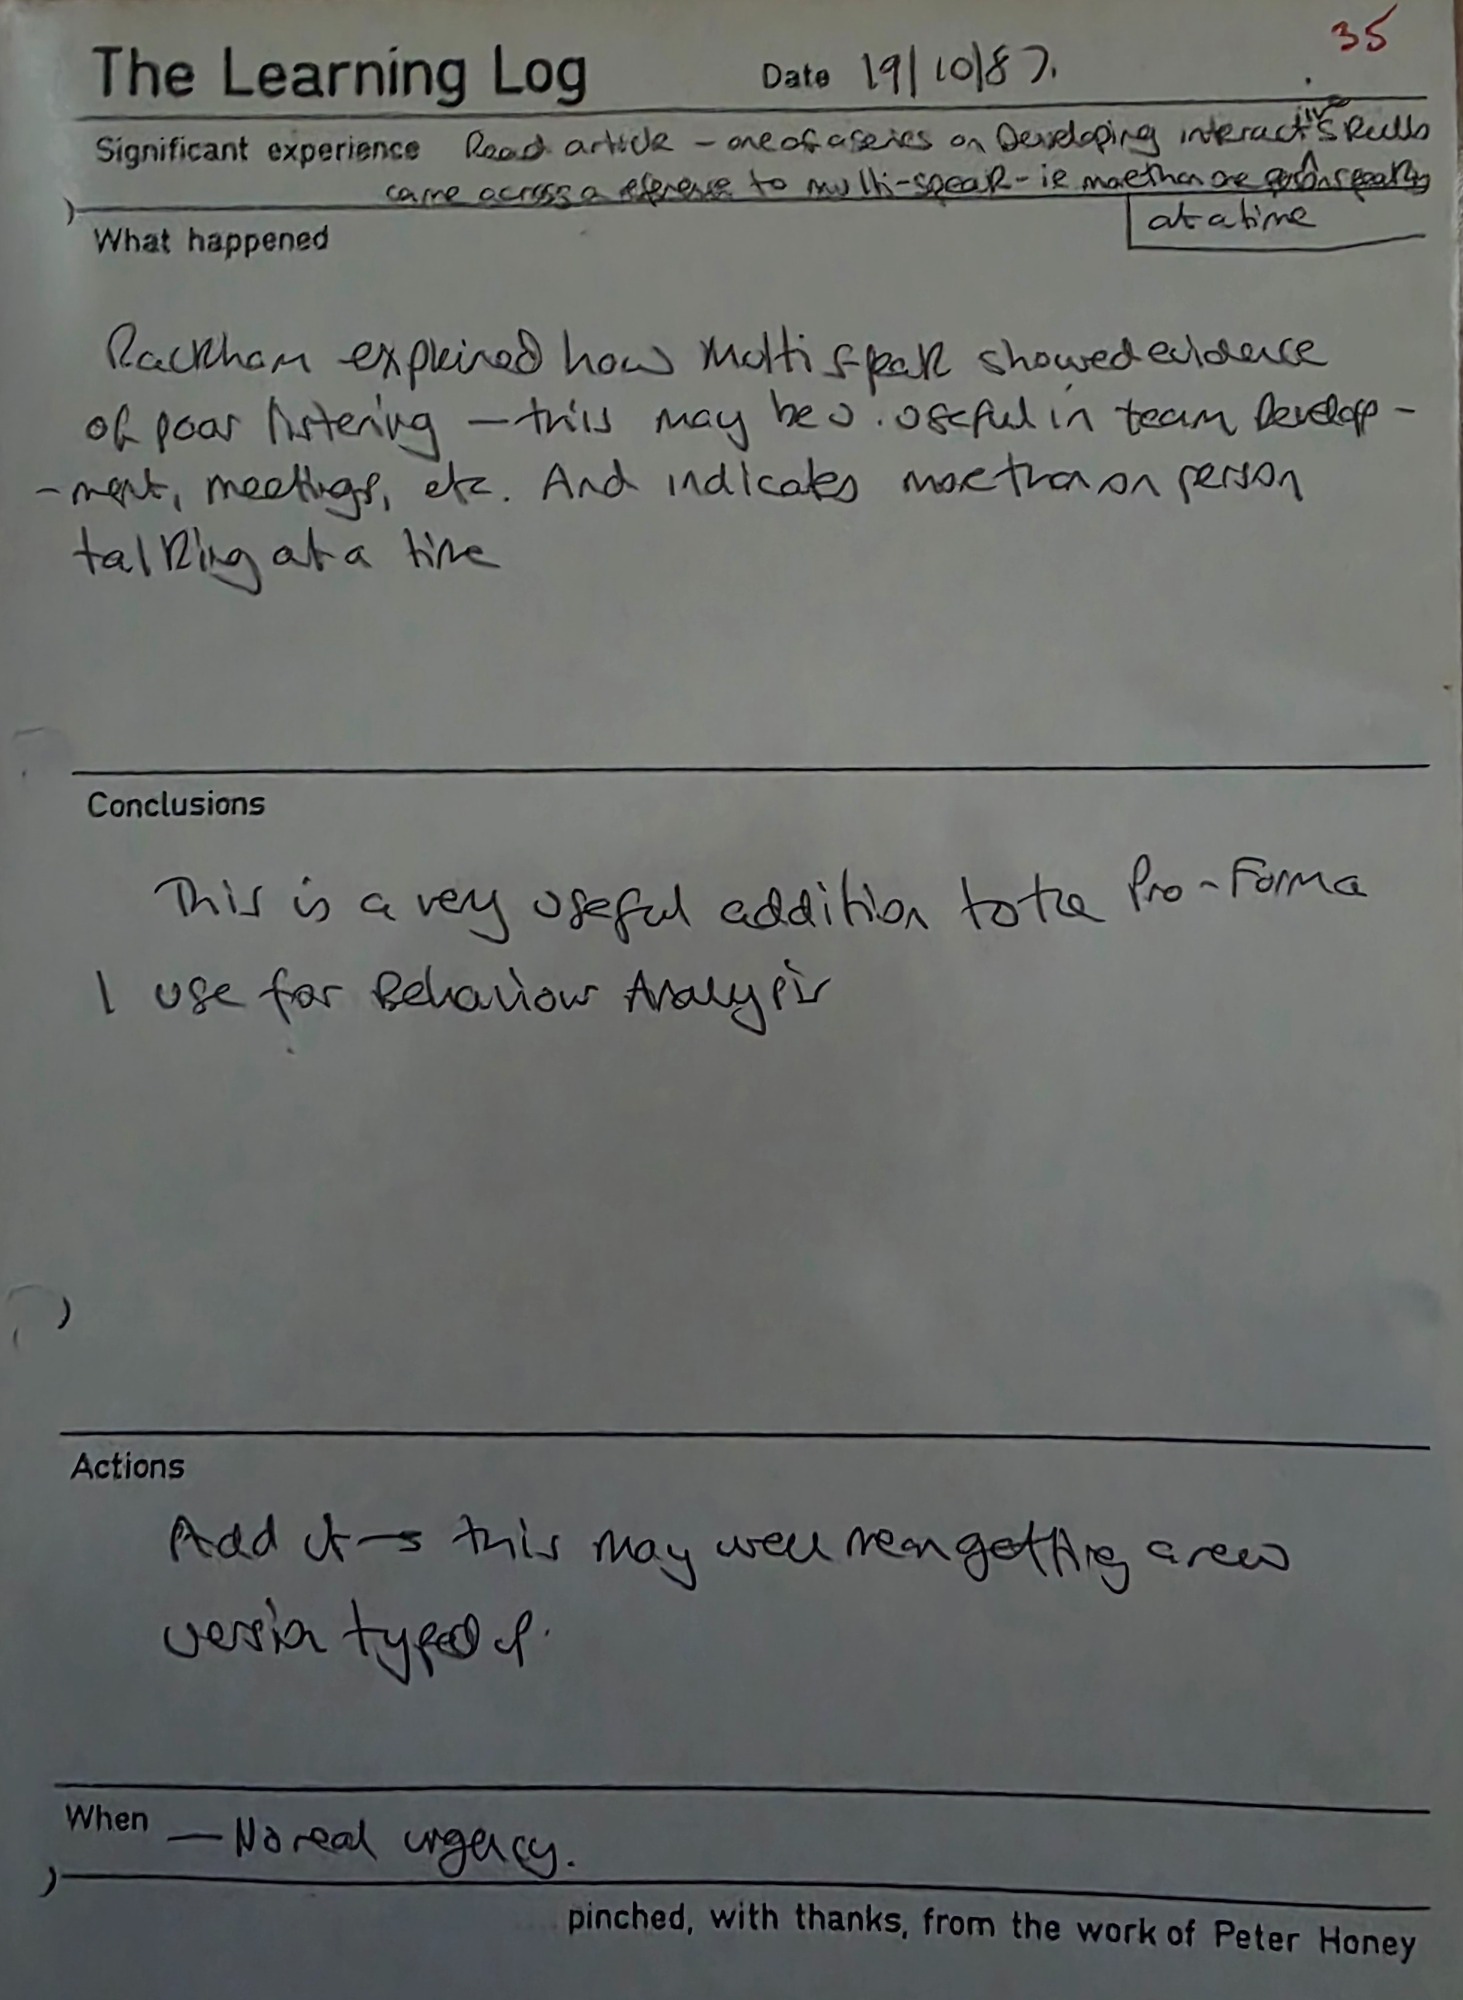 35
The Learning Log Date 19/10/87.
Significant experience Read article - one of a series on Developing interactive skills
came across a reference to multi-speak - ie more than one person speaking
at a time
What happened
Rackham explained how multi speak showed evidence
of poor listening - this may be useful in team Develop-
-ment, meetings, etc. And indicates more than on person
talking at a time
Conclusions
This is a very useful addition to the Pro-Forma
I use for Behaviour Analysis
Actions
Add it → this may well mean getting a new
version typed up.
When - No real urgency.
pinched, with thanks, from the work of Peter Honey